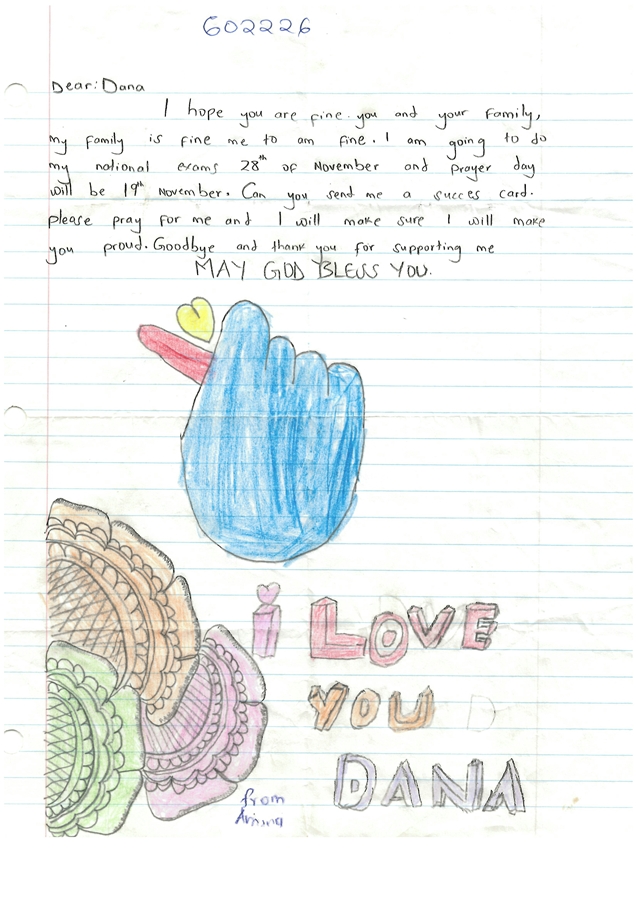 602226
Dear: Dana
I hope you are fine. you and your family,
my family is fine me to am fine. I am going to do
my national exams 28th of November and prayer day
will be 19th November. Can you send me a succes card.
please pray for me and I will make sure I will make
you proud. Goodbye and thank you for supporting me
MAY GOD BLESS YOU.
i LOVE
YOU D
DANA
from